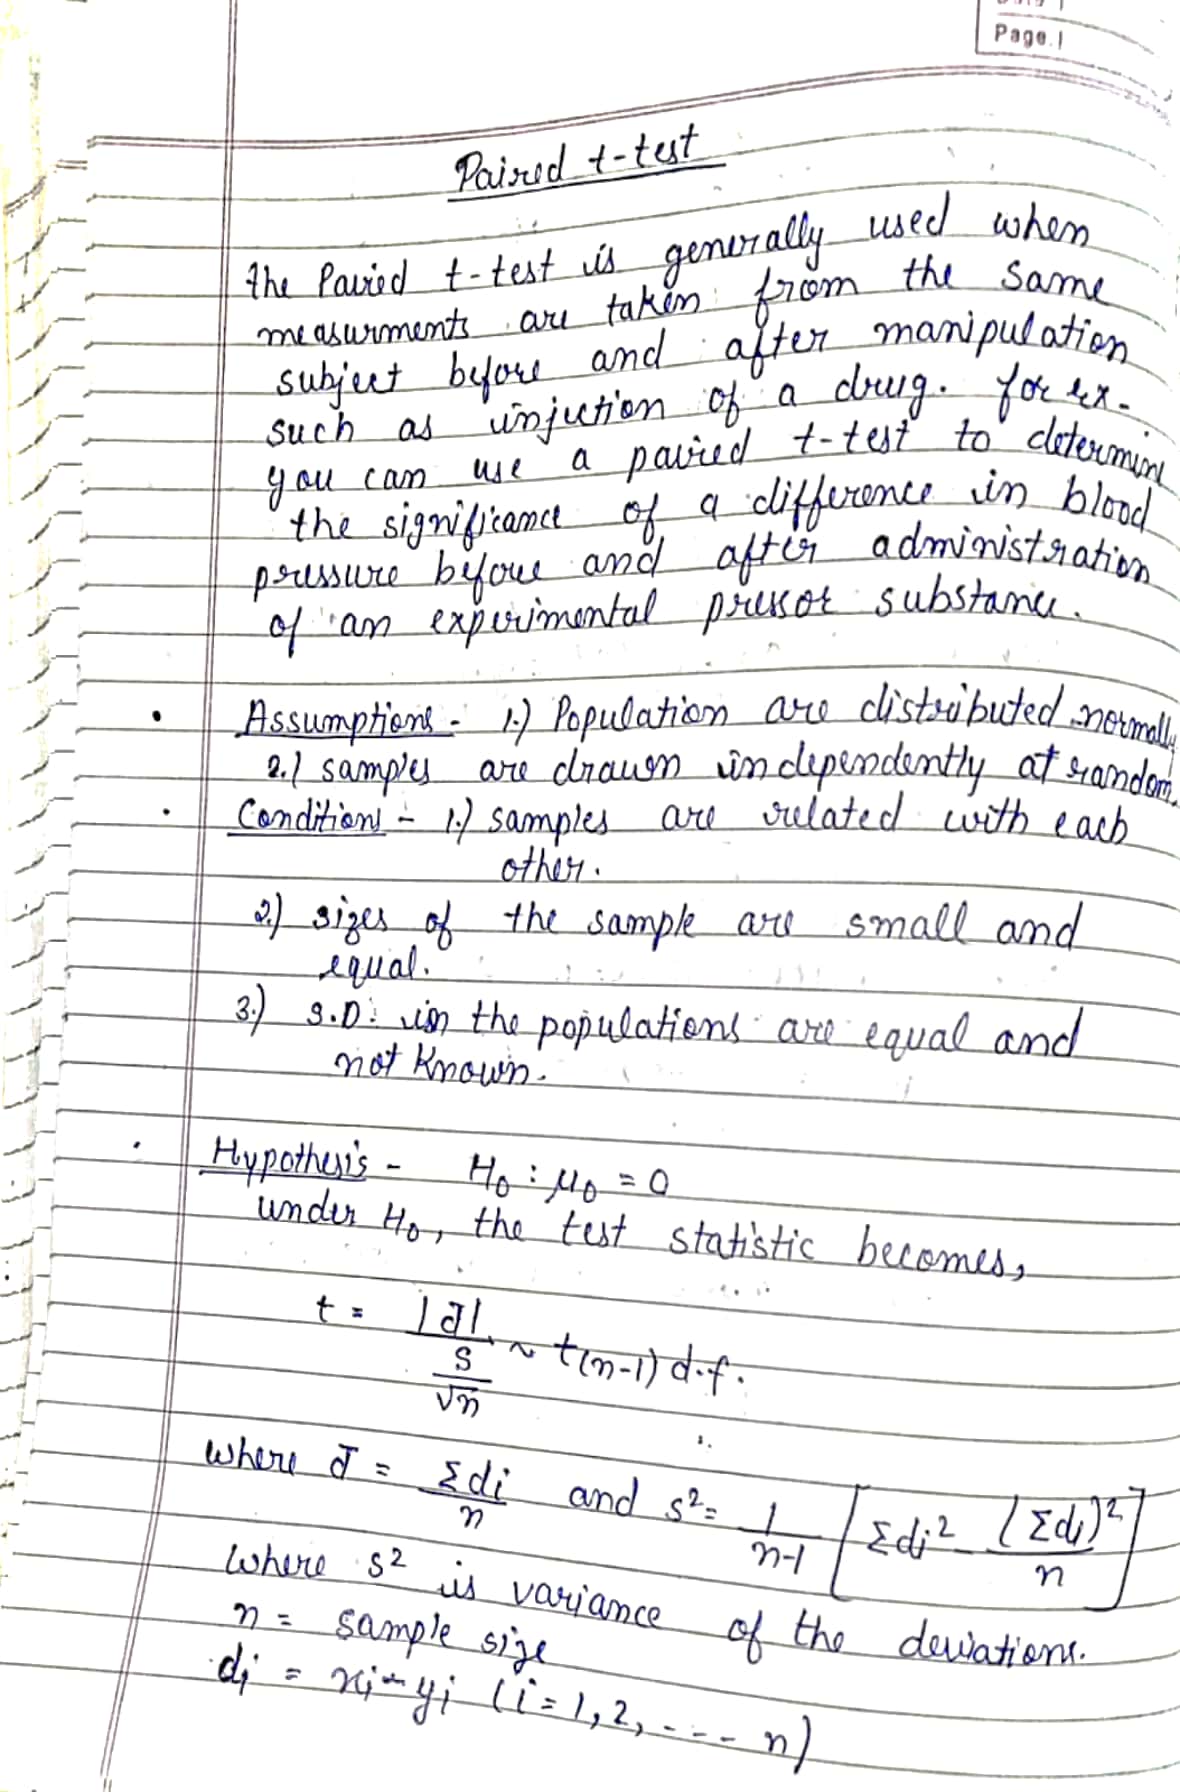 Page.
Paired t-test
the Paired t-test is generally used when
measurments are taken from the same
subject before and after manipulation
such as injection of a drug. for ex-
you can use a paired t-test to determine
the significance of a difference in blood
pressure before and after administration
of an experimental pressor substance.
• Assumptions - 1.) Population are distributed normally
2.) samples are drawn independently at random.
• Conditions - 1.) samples are related with each
other.
2.) sizes of the sample are small and
equal.
3.) S.D. in the populations are equal and
not known.
• Hypothesis - H₀ : μ₀ = 0
under H₀, the test statistic becomes,
t = |d̄| / (s/√n) ~ t(n-1) d.f.
where d̄ = Σdi/n and s² = 1/(n-1) [Σdi² - (Σdi)²/n]
where s² is variance of the deviations.
n = sample size
di = xi - yi (i = 1, 2, ---- n)